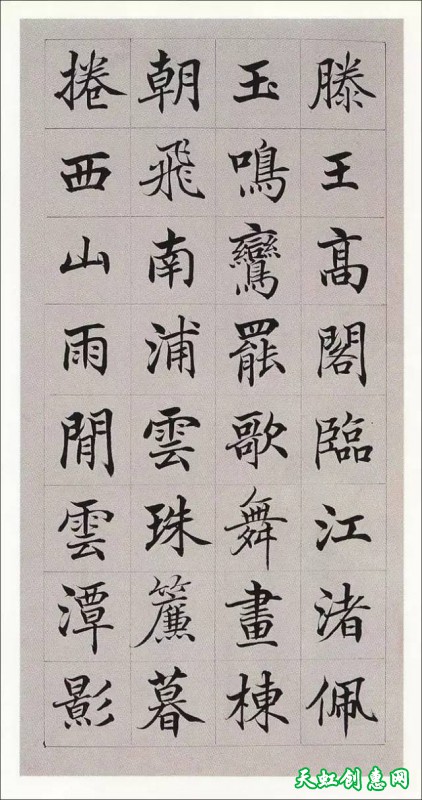 滕王高閣臨江渚佩
玉鳴鸞罷歌舞畫棟
朝飛南浦雲珠簾暮
捲西山雨閒雲潭影
天虹创惠网